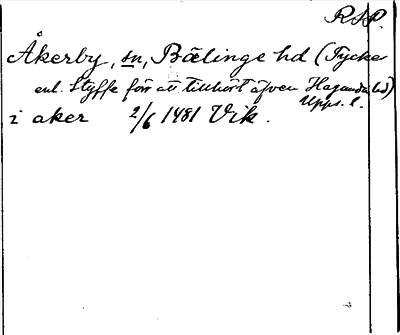 RSP.
Åkerby, sn, Bälinge hd (Tycke
enl. Styffe förr att tillhört äfven Hagunda hd)
Upps. l.
i aker 2/6 1481 Vik.